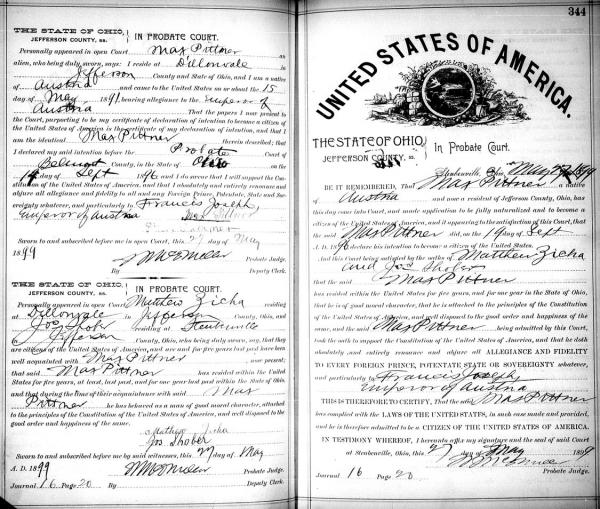 THE STATE OF OHIO, JEFFERSON COUNTY, ss. IN PROBATE COURT.
Personally appeared in open Court Max Pittner an
alien, who being duly sworn, says: I reside at Dillonvale
Jefferson County and State of Ohio, and I am a native
of Austria and came to the United States on or about the 15
day of May 1891, bearing allegiance to the Emperor of
Austria That the papers I now present to
the Court, purporting to be my certificate of declaration of intention to become a citizen of
the United States of America is the certificate of my declaration of intention, and that I
am the identical Max Pittner therein described; that
I declared my said intention before the Probate Court of
Belmont County, in the State of Ohio on the
19 day of Sept 1896 and I do swear that I will support the Consti-
tution of the United States of America, and that I absolutely and entirely renounce and
abjure all allegiance and fidelity to all and every Foreign Prince, Potentate, State and Sov-
ereignty whatever, and particularly to Francis Joseph
Emperor of Austria Max Pittner
Sworn to and subscribed before me in open Court, this 27 day of May
1899
Probate Judge.
By Deputy Clerk.
THE STATE OF OHIO, JEFFERSON COUNTY, ss. IN PROBATE COURT.
Personally appeared in open Court Matthew Zicha residing
at Dillonvale in Jefferson County, Ohio, and
Jos Shober residing at Steubenville
Jefferson County, Ohio, who being duly sworn, say, that they
are citizens of the United States of America, and have and for five years last past have been
well acquainted with Max Pittner now present;
that said Max Pittner has resided within the
United States for five years, at least, last past, and for one year last past within the State of Ohio,
and that during the time of their acquaintance with said Max
Pittner he has behaved as a man of good moral character, attached
to the principles of the Constitution of the United States of America, and well disposed to the
good order and happiness of the same.
Mathew Zicha
Jos. Shober
Sworn to and subscribed before me by said witnesses, this 27 day of May
A. D. 1899
Probate Judge.
Journal 16 Page 20 By Deputy Clerk.
344
UNITED STATES OF AMERICA.
THE STATE OF OHIO, JEFFERSON COUNTY, ss. In Probate Court.
Steubenville, Ohio, May 27 1899
BE IT REMEMBERED, That Max Pittner a native
of Austria and now a resident of Jefferson County, Ohio, has
this day come into Court, and made application to be fully naturalized and to become a
citizen of the United States of America, and it appearing to the satisfaction of this Court, that
the said Max Pittner did, on the 19 day of Sept
A. D. 1896 declare his intention to become a citizen of the United States.
And this Court being satisfied by the oaths of Matthew Zicha
and Jos Shober
that the said Max Pittner
has resided within the United States for five years, and for one year in the State of Ohio, that
he is of good moral character, that he is attached to the principles of the Constitution
of the United States of America, and well disposed to the good order and happiness of the
same, and the said Max Pittner being admitted by this Court,
took the oath to support the Constitution of the United States of America, and that he doth
absolutely and entirely renounce and abjure all ALLEGIANCE AND FIDELITY
TO EVERY FOREIGN PRINCE, POTENTATE STATE OR SOVEREIGNTY whatever,
and particularly to Francis Joseph
Emperor of Austria
THIS IS THEREFORE TO CERTIFY, That the said Max Pittner
has complied with the LAWS OF THE UNITED STATES, in such case made and provided,
and he is therefore admitted to be a CITIZEN OF THE UNITED STATES OF AMERICA.
IN TESTIMONY WHEREOF, I hereunto affix my signature and the seal of said Court
at Steubenville, Ohio, this 27 day of May 1899
Probate Judge.
Journal 16 Page 20